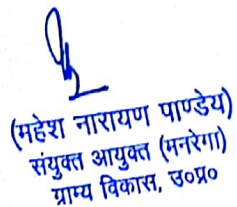 (महेश नारायण पाण्डेय)
संयुक्त आयुक्त (मनरेगा)
ग्राम्य विकास, उ०प्र०